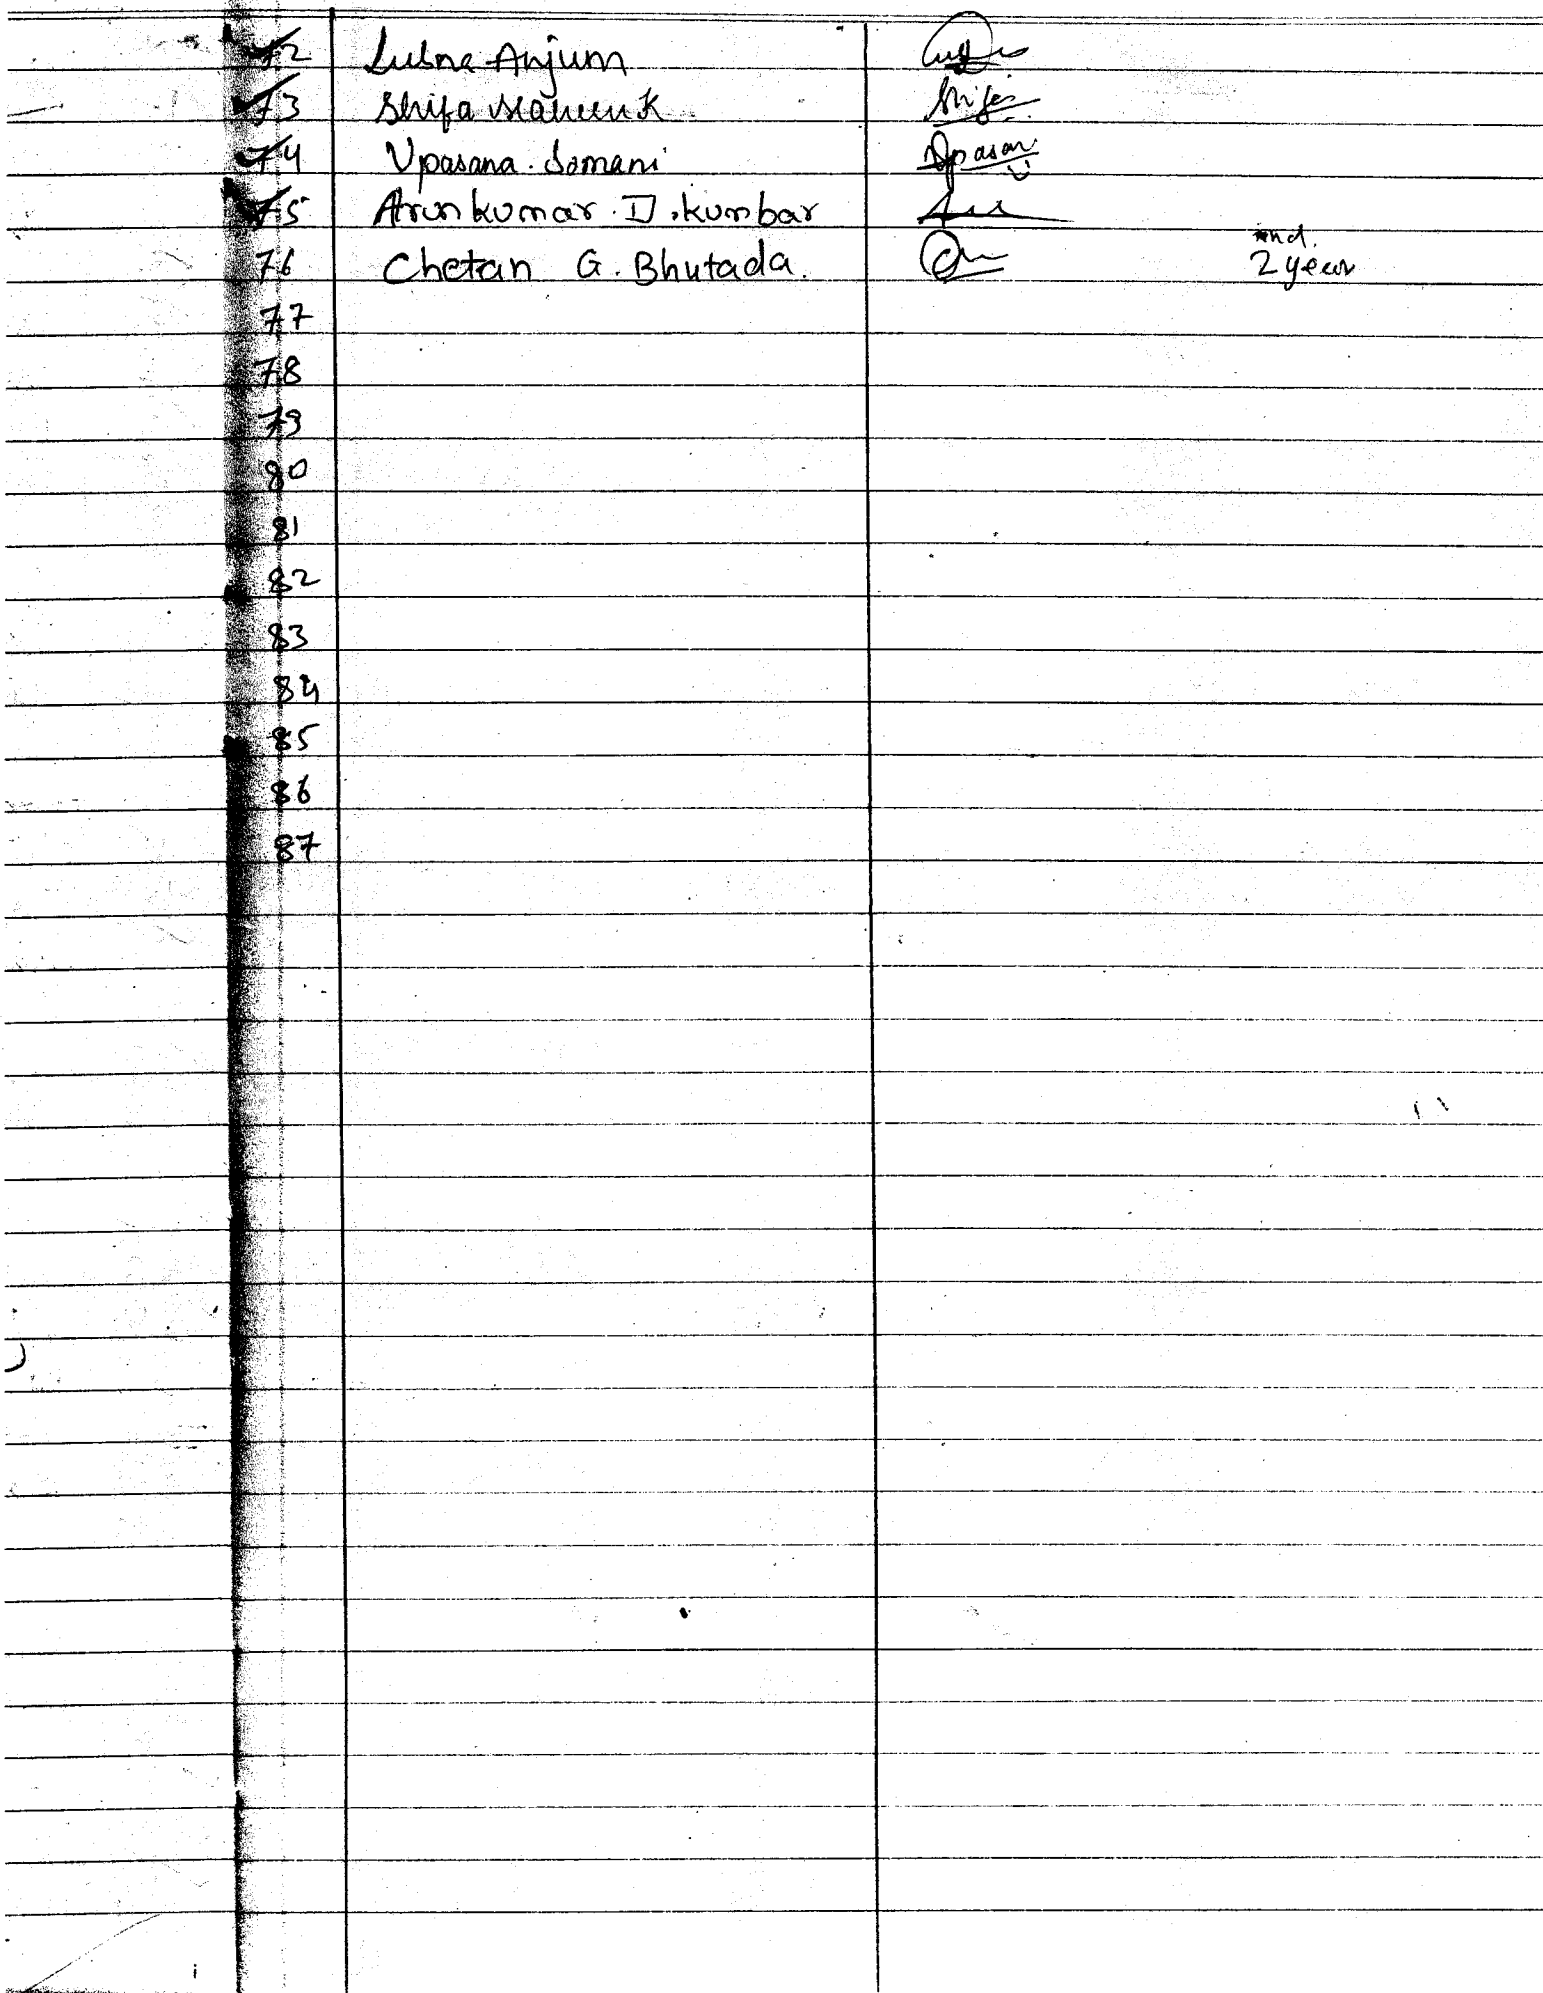 72 Lubna Anjum
73 Shifa Maheen K Shifa
74 Upasana. Somani Upasani
75 Arunkumar. D. kumbar
76 Chetan G. Bhutada. 2nd. 2 year
77
78
79
80
81
82
83
84
85
86
87